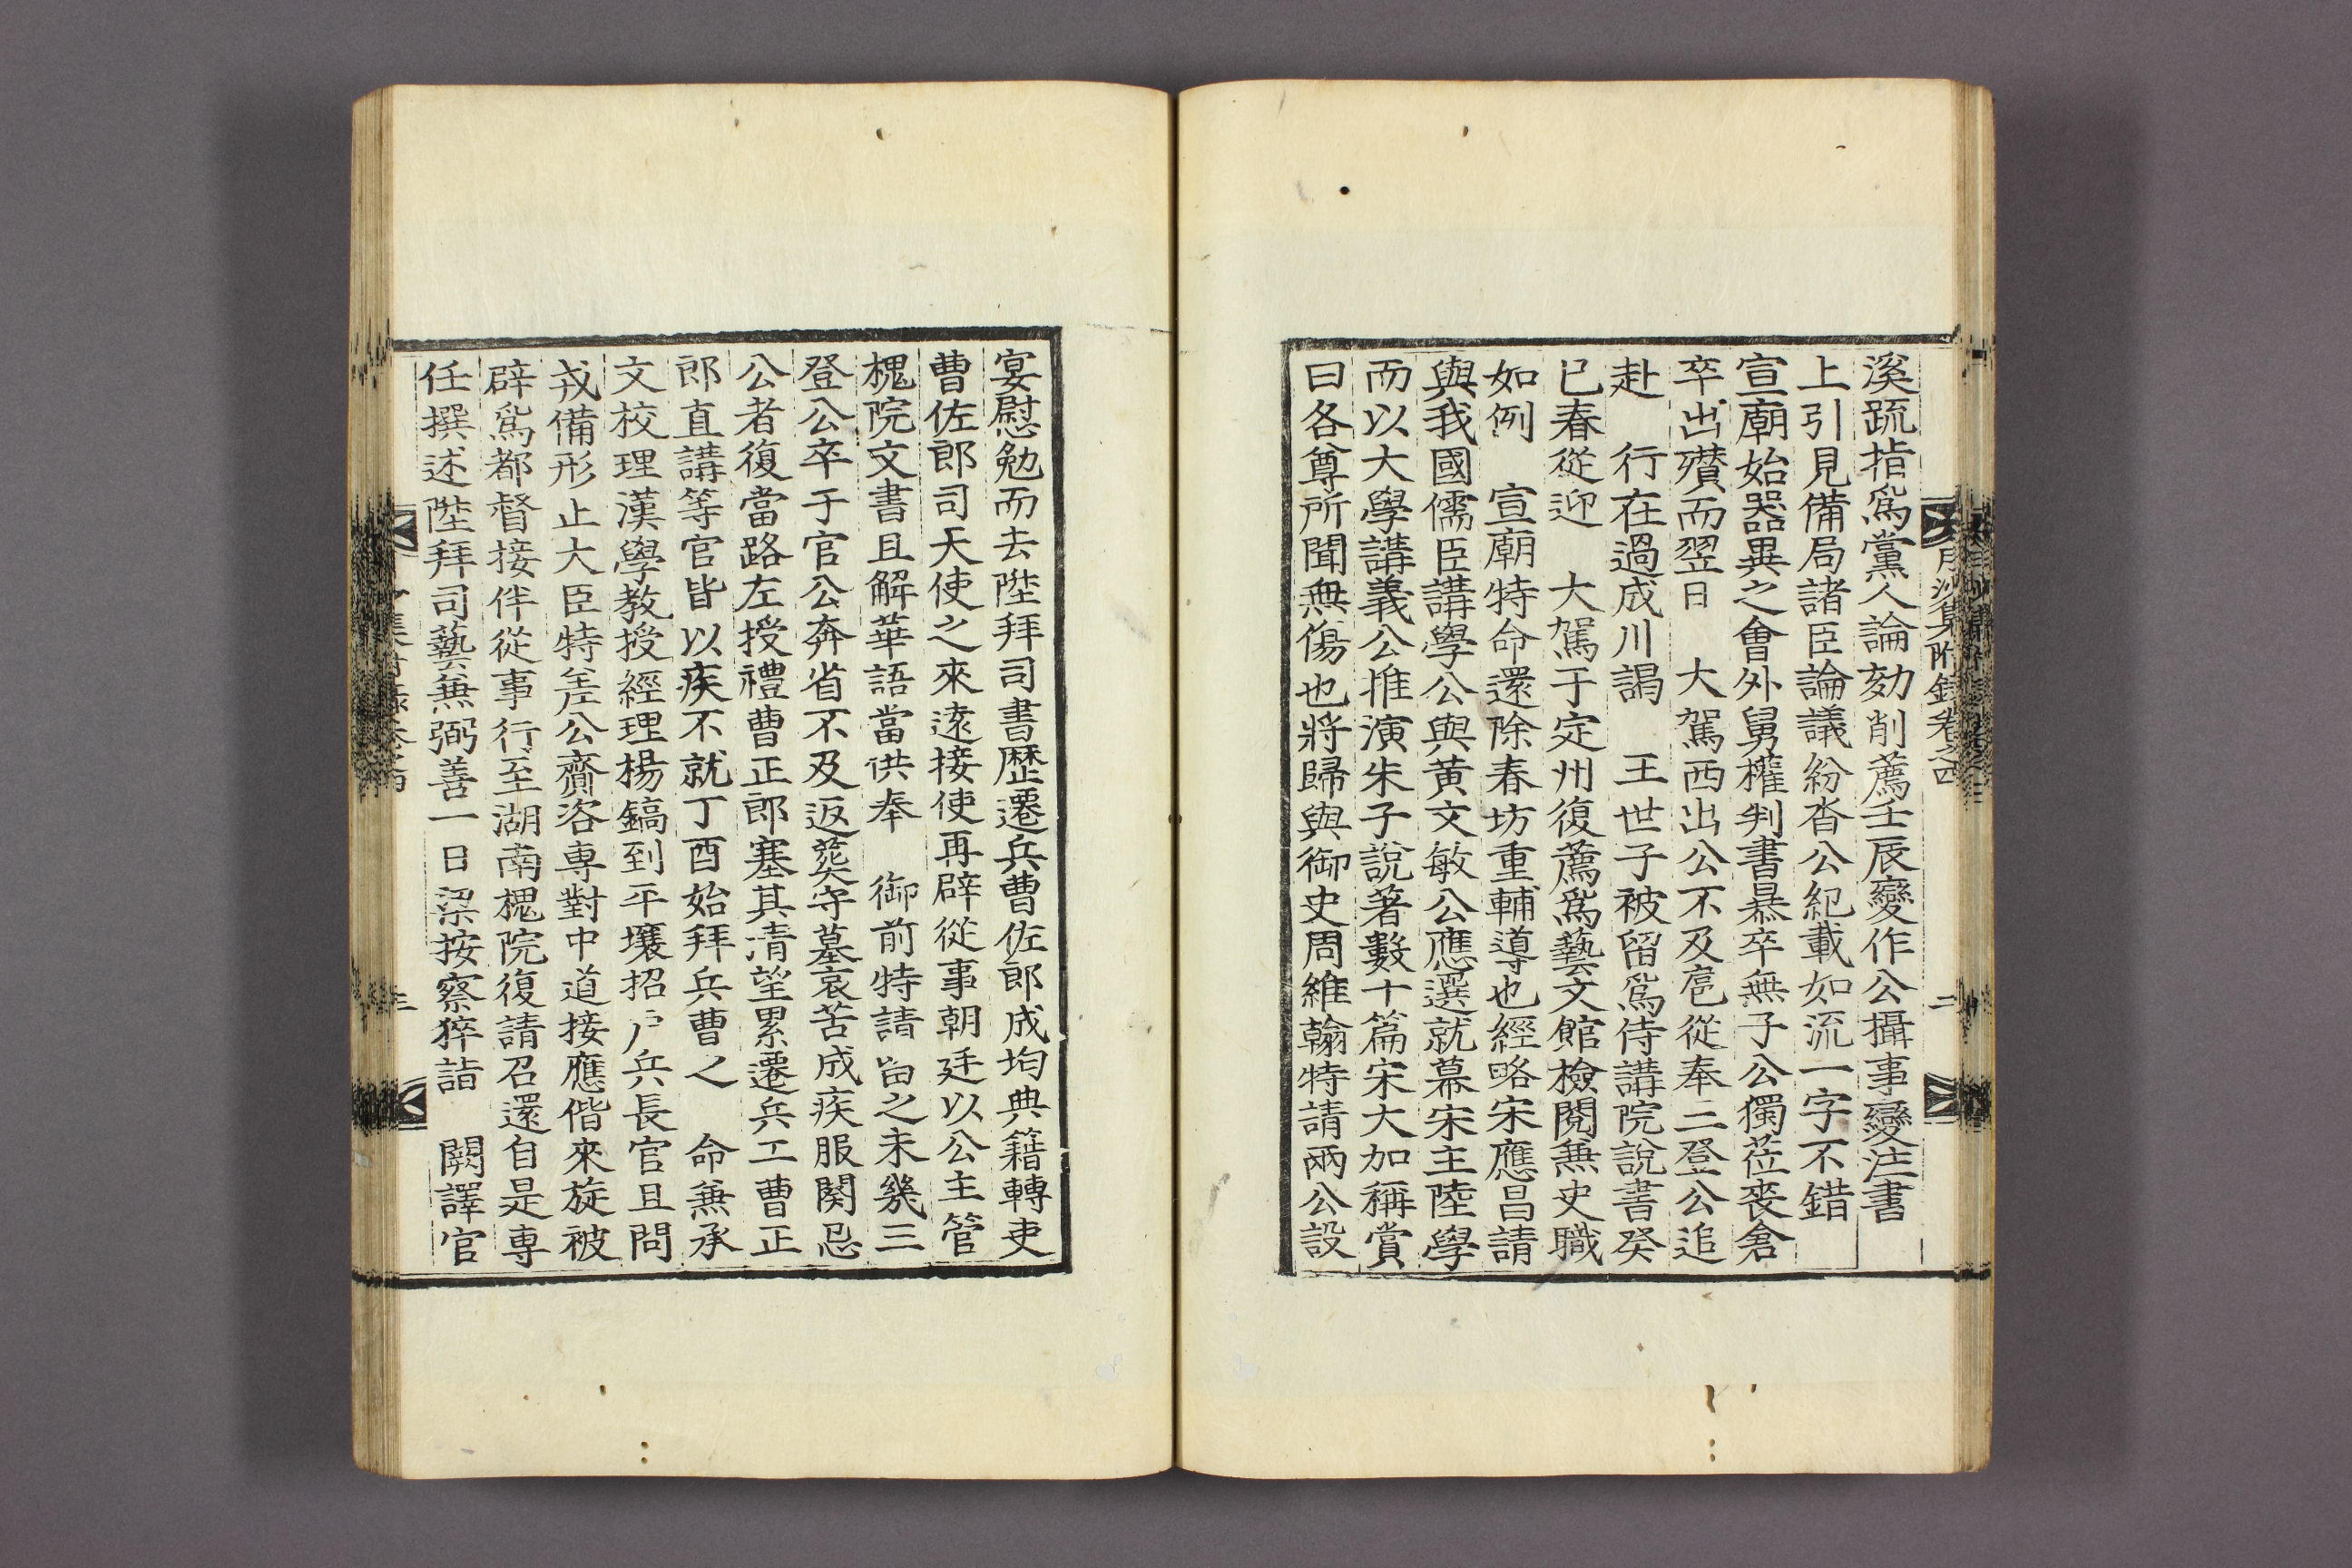 溪疏指爲黨人論劾削薦壬辰變作公攝事變注書
上引見備局諸臣論議紛沓公紀載如流一字不錯
宣廟始器異之會外舅權判書㬥卒無子公獨莅喪倉
卒出殯而翌日　大駕西出公不及扈從奉三登公追
赴　行在過成川謁　王世子被留爲侍講院說書癸
巳春從迎　大駕于定州復薦爲藝文館檢閱兼史職
如例　宣廟特命還除春坊重輔導也經略宋應昌請
與我國儒臣講學公與黃文敏公應選就幕宋主陸學
而以大學講義公推演朱子說著數十篇宋大加稱賞
曰各尊所聞無傷也將歸與御史周維翰特請兩公設
月沙集附錄卷之四
二
宴慰勉而去陞拜司書歷遷兵曹佐郎成均典籍轉吏
曹佐郎司天使之來遠接使再辟從事朝廷以公主管
槐院文書且解華語當供奉　御前特請留之未幾三
登公卒于官公奔省不及返葬守墓哀苦成疾服闋忌
公者復當路左授禮曹正郎塞其清望累遷兵工曹正
郎直講等官皆以疾不就丁酉始拜兵曹之　命兼承
文校理漢學教授經理楊鎬到平壤招戶兵長官且問
戎備形止大臣特差公齎咨專對中道接應偕來旋被
辟爲都督接伴從事行至湖南槐院復請召還自是專
任撰述陞拜司藝兼弼善一日梁按察猝詣　闕譯官
三